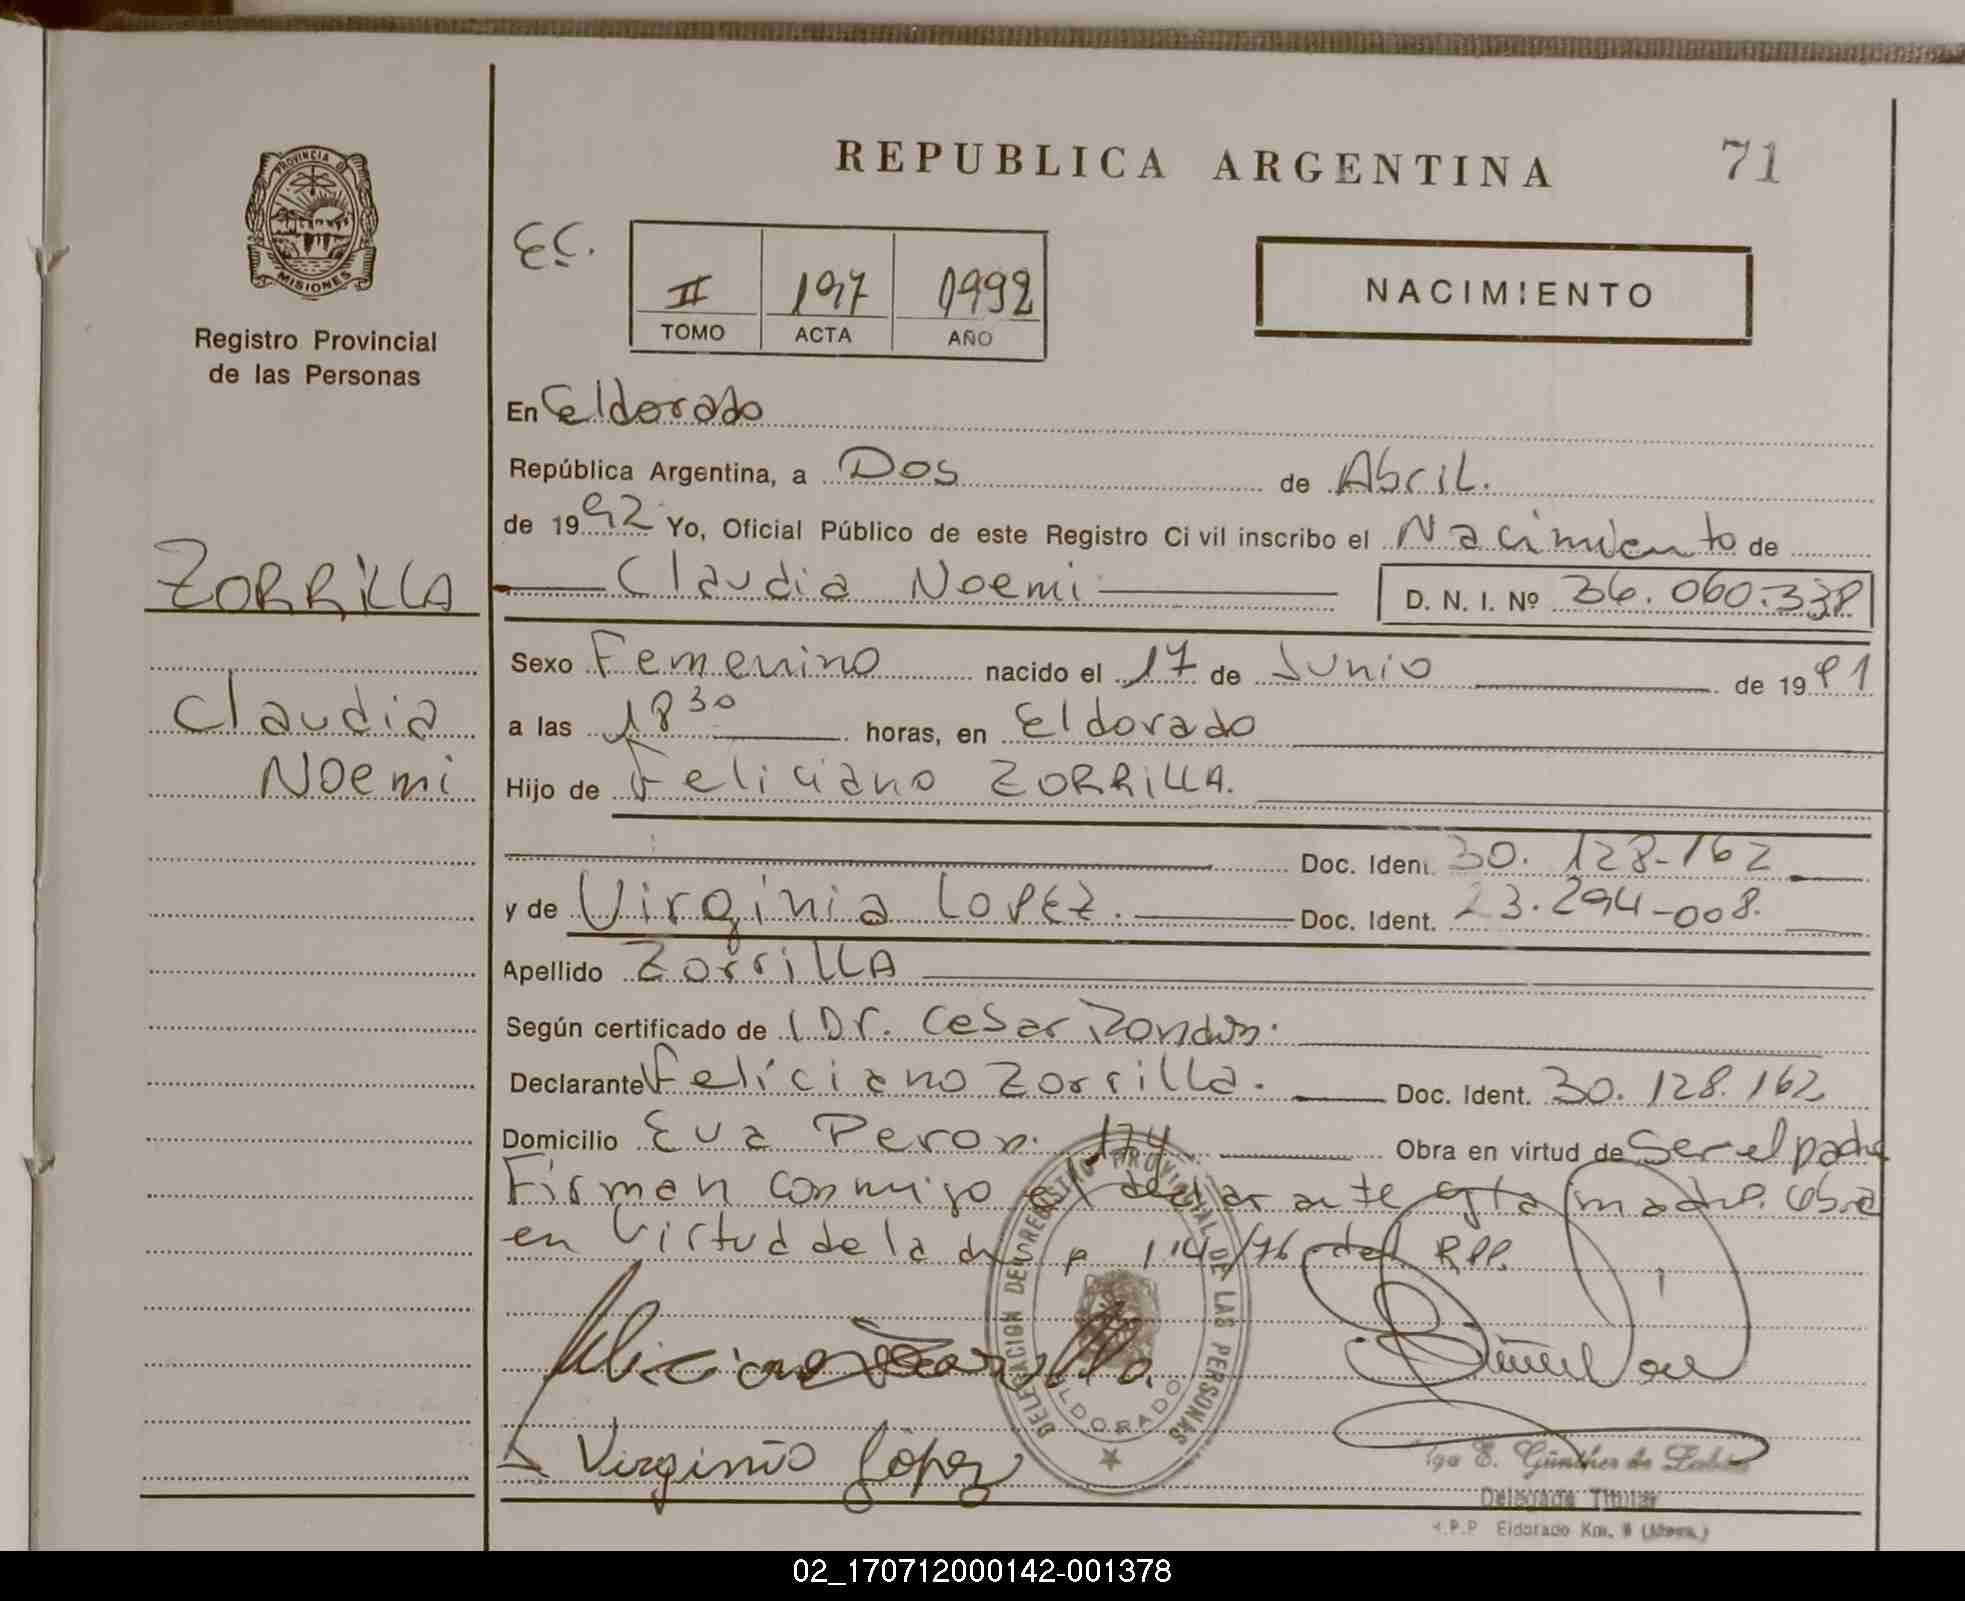 REPUBLICA ARGENTINA 71
PROVINCIA DE
MISIONES
Registro Provincial
de las Personas
EC.
II 197 1992
TOMO ACTA AÑO
NACIMIENTO
En Eldorado
República Argentina, a Dos de Abril.
de 1992 Yo, Oficial Público de este Registro Civil inscribo el Nacimiento de
ZORRILLA
Claudia Noemi D. N. I. Nº 36.060.338
Sexo Femenino nacido el 17 de Junio de 1991
Claudia
a las 18 30 horas, en Eldorado
Noemi
Hijo de Feliciano ZORRILLA.
Doc. Ident. 30.128-162
y de Virginia LOPEZ. Doc. Ident. 23.294-008.
Apellido ZorriLLA
Según certificado de Dr. Cesar
Declarante Feliciano Zorrilla. Doc. Ident. 30.128.162
Domicilio Eva Peron. 174 Obra en virtud de Ser el padre
Firman conmigo el declarante esta madre. Obra
en Virtud de la 114/76 del RPP.
DELEGACION DEL REGISTRO PROVINCIAL DE LAS PERSONAS
ELDORADO
Feliciano Zorrilla
Virginia López
E. Günther de
Delegada Titular
R.P.P Eldorado Km. 9 (Mnes.)
02_170712000142-001378